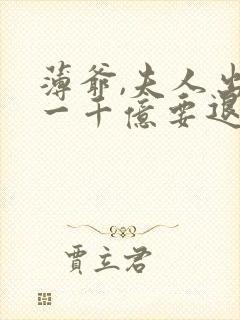 薄爺,夫人出
一千億要退
賈立君